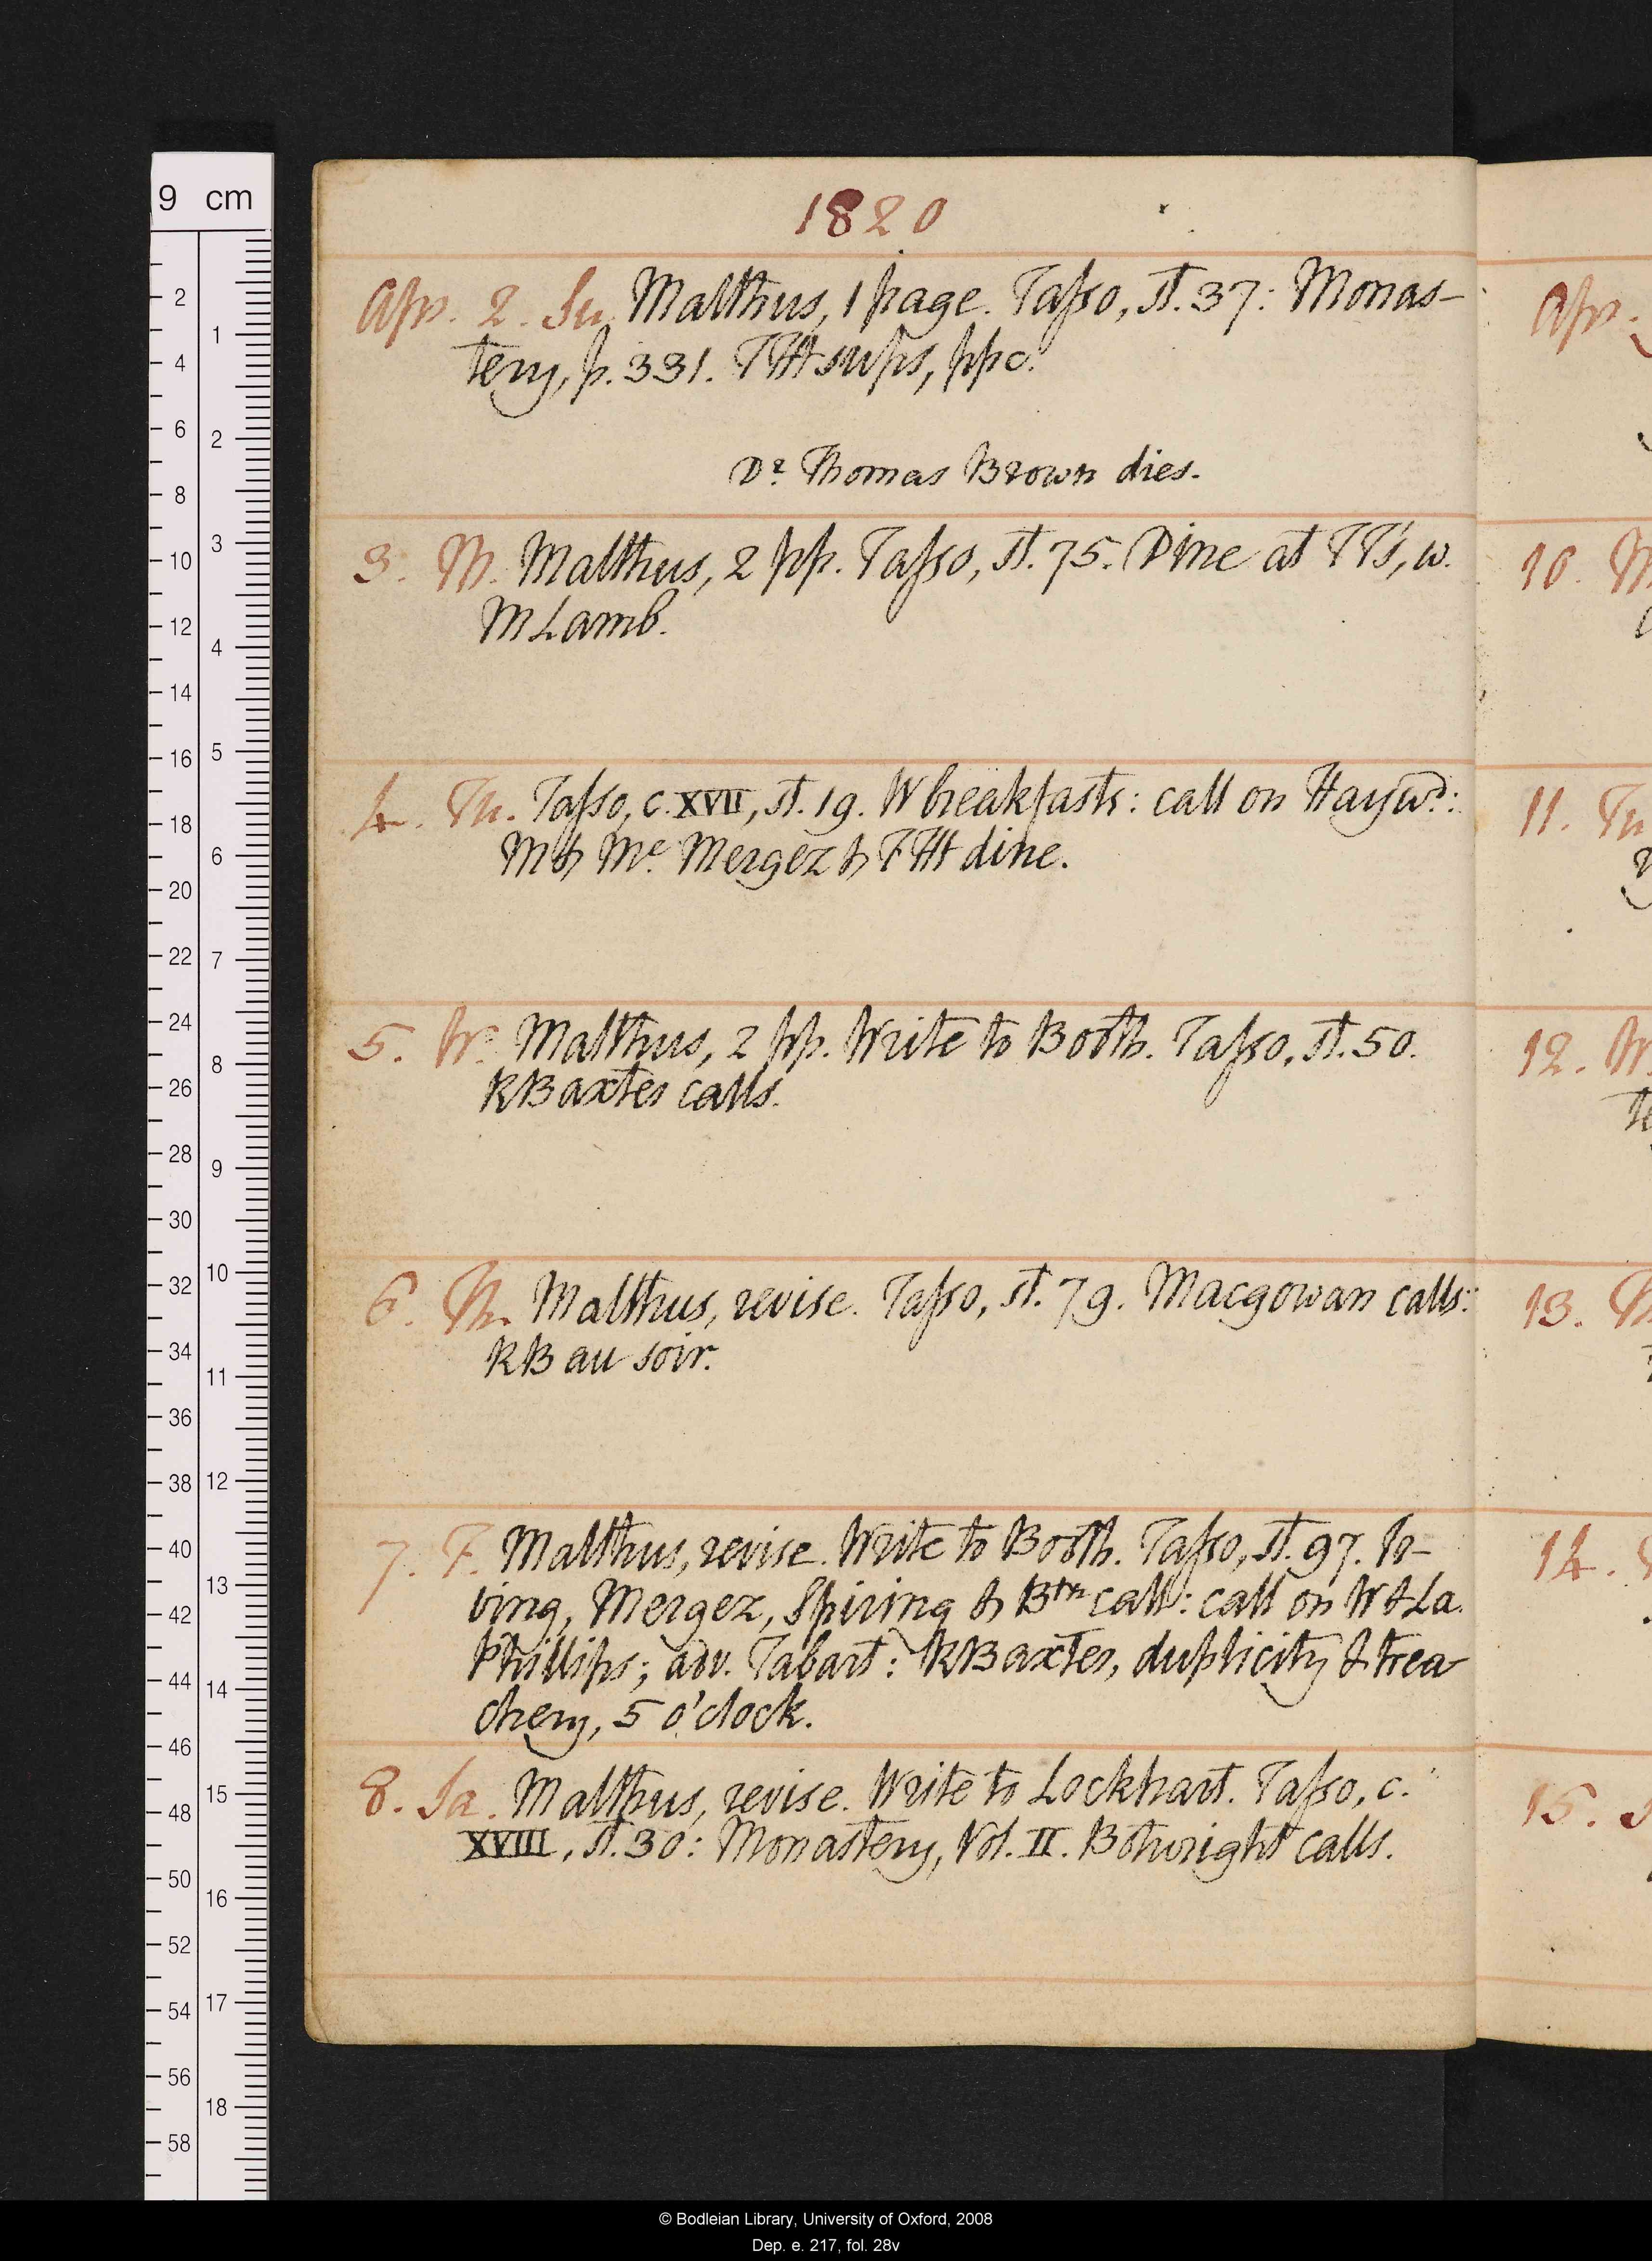 1820
Apr. 2. Su. Malthus, 1 page. Tasso, st. 37: Monas-
tery, p. 331. THt sups, ppc.
Dr. Thomas Brown dies.
3. M. Malthus, 2 pp. Tasso, st. 75. Dine at TT's, w.
M Lamb.
4. Tu. Tasso, c. XVII, st. 19. W breakfasts: call on Haywd.:
M & Me. Mergez & THt dine.
5. W. Malthus, 2 pp. Write to Booth. Tasso, st. 50.
RBaxter calls.
6. Th. Malthus, revise. Tasso, st. 79. Macgowan calls:
RB au soir.
7. F. Malthus, revise. Write to Booth. Tasso, st. 97. Ir-
ving, Mergez, Spiring & Btn call: call on W & La.
Phillips; adv. Tabart: RBaxter, duplicity & trea
chery, 5 o'clock.
8. Sa. Malthus, revise. Write to Lockhart. Tasso, c.
XVIII, st. 30: Monastery, Vol. II. Botwright calls.
Apr.
10. M
11. Tu
12. W.
te
13. Th
14.
15. S
9 cm
2 4 6 8 10 12 14 16 18 20 22 24 26 28 30 32 34 36 38 40 42 44 46 48 50 52 54 56 58
1 2 3 4 5 6 7 8 9 10 11 12 13 14 15 16 17 18
© Bodleian Library, University of Oxford, 2008
Dep. e. 217, fol. 28v